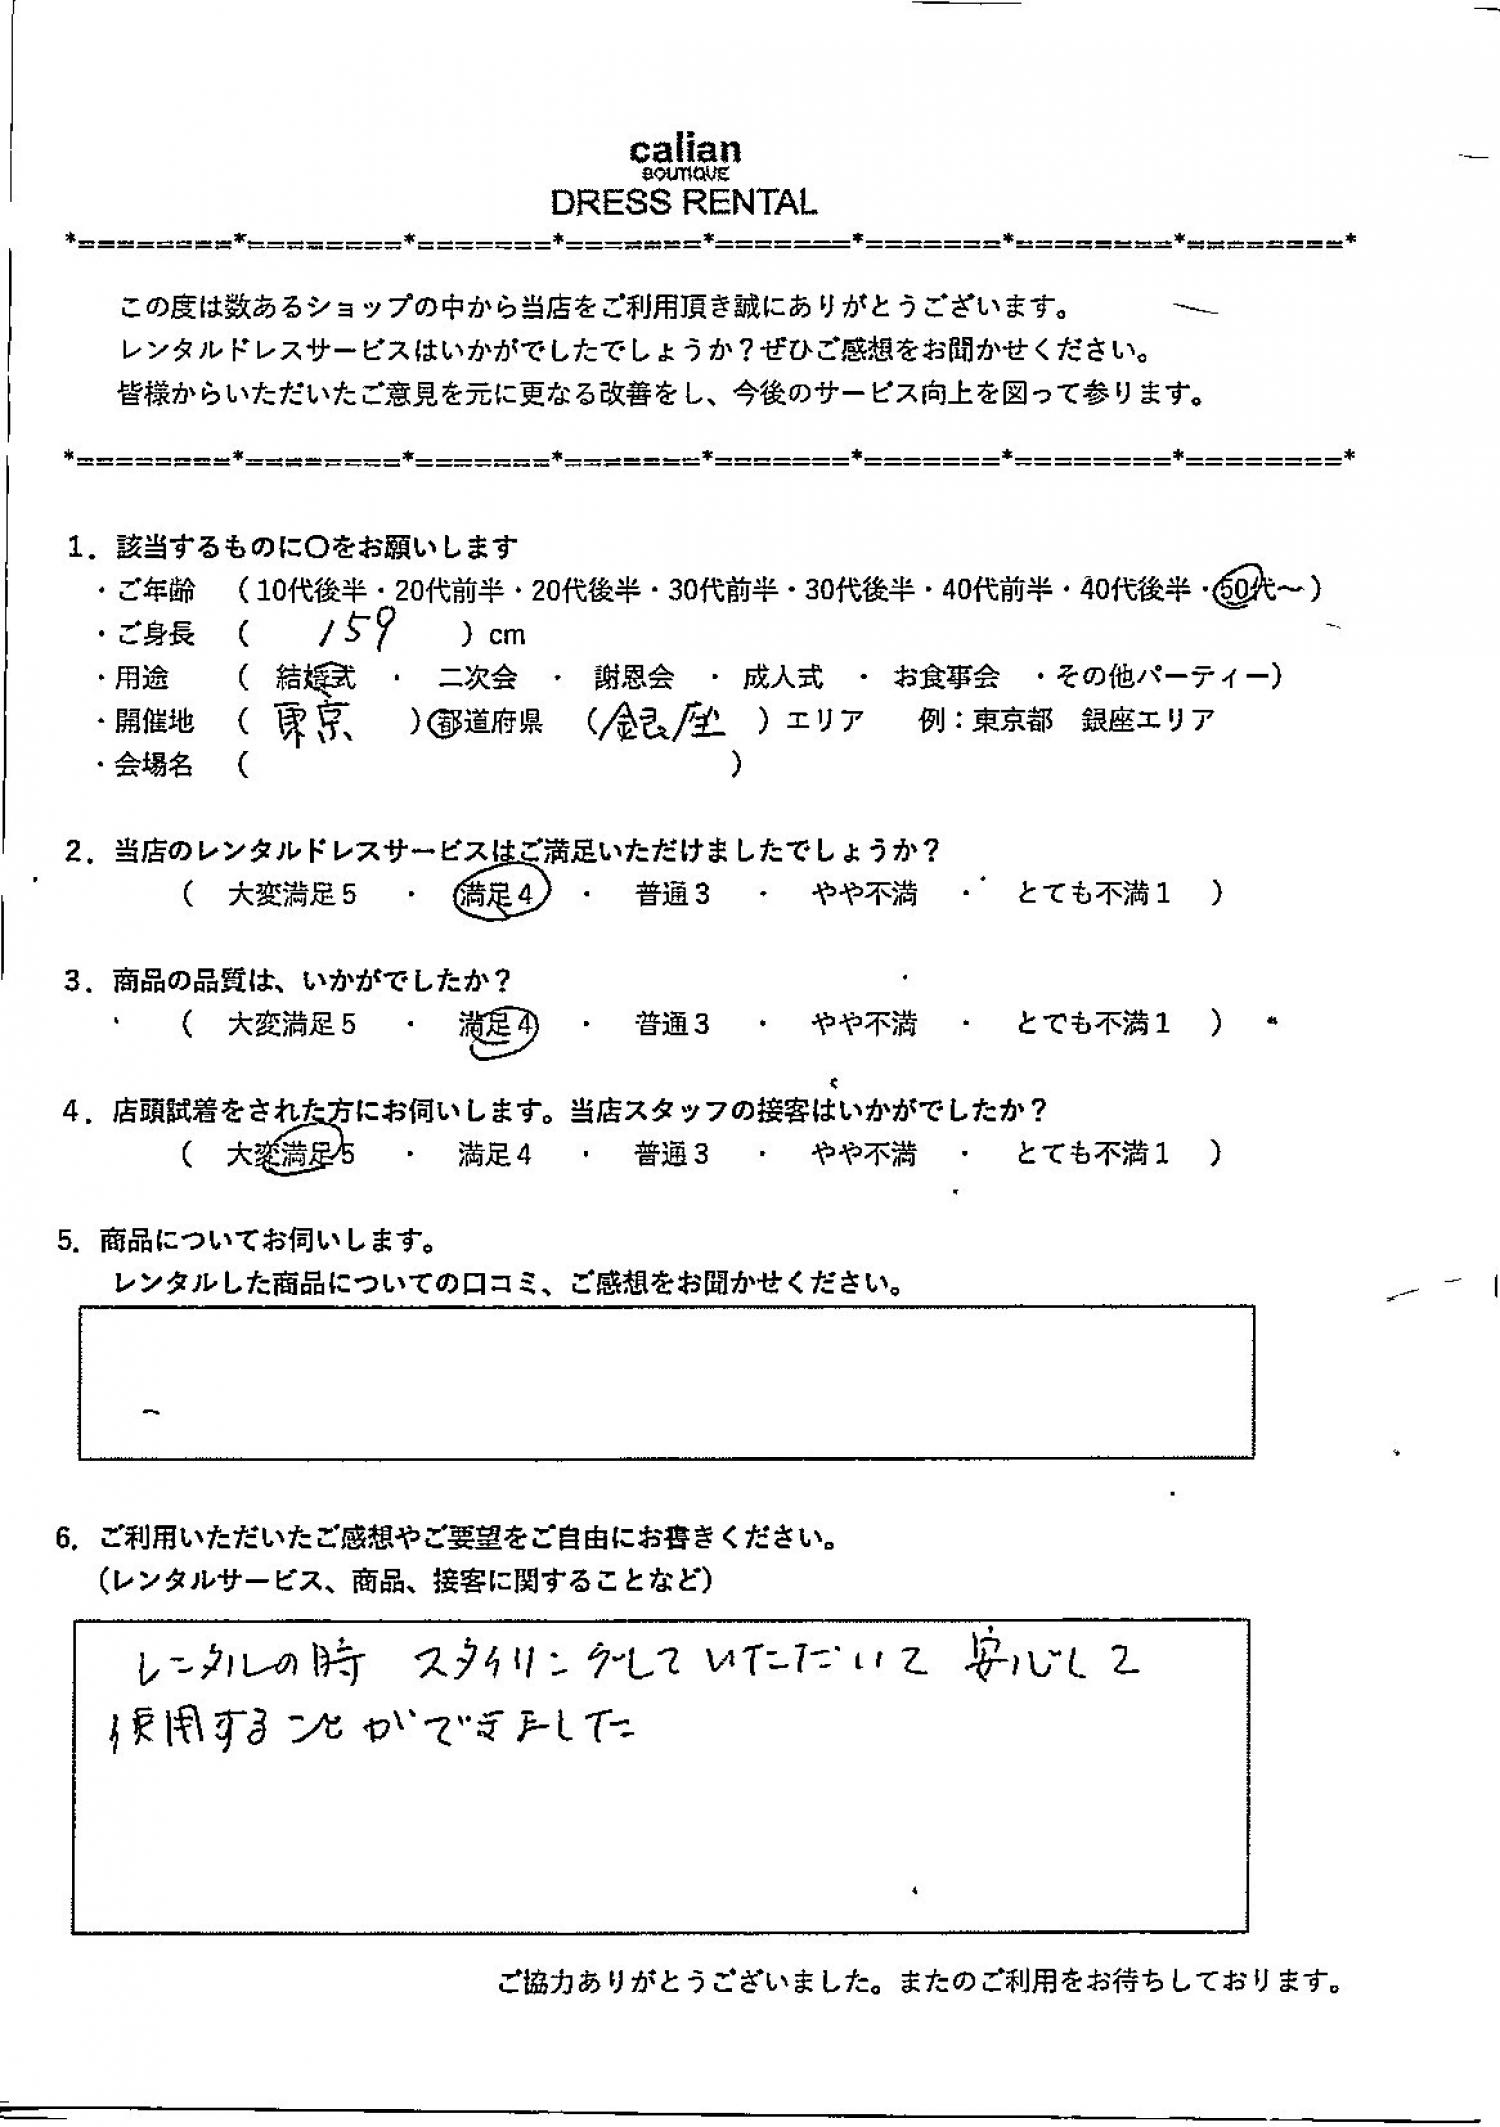 calian
BOUTIQUE
DRESS RENTAL
*========*========*=======*=======*=======*=======*========*========*
この度は数あるショップの中から当店をご利用頂き誠にありがとうございます。
レンタルドレスサービスはいかがでしたでしょうか？ぜひご感想をお聞かせください。
皆様からいただいたご意見を元に更なる改善をし、今後のサービス向上を図って参ります。
*========*========*=======*=======*=======*=======*========*========*
1．該当するものに〇をお願いします
・ご年齢 （10代後半・20代前半・20代後半・30代前半・30代後半・40代前半・40代後半・50代～）
・ご身長 （ 159 ）cm
・用途 （ 結婚式 ・ 二次会 ・ 謝恩会 ・ 成人式 ・ お食事会 ・その他パーティー）
・開催地 （ 東京 ）都道府県 （銀座 ）エリア 例：東京都 銀座エリア
・会場名 （ ）
2．当店のレンタルドレスサービスはご満足いただけましたでしょうか？
（ 大変満足5 ・ 満足4 ・ 普通3 ・ やや不満 ・ とても不満1 ）
3．商品の品質は、いかがでしたか？
（ 大変満足5 ・ 満足4 ・ 普通3 ・ やや不満 ・ とても不満1 ）
4．店頭試着をされた方にお伺いします。当店スタッフの接客はいかがでしたか？
（ 大変満足5 ・ 満足4 ・ 普通3 ・ やや不満 ・ とても不満1 ）
5．商品についてお伺いします。
レンタルした商品についての口コミ、ご感想をお聞かせください。
6．ご利用いただいたご感想やご要望をご自由にお書きください。
（レンタルサービス、商品、接客に関することなど）
レンタルの時 スタイリングして いただいて 安心して
使用することができました
ご協力ありがとうございました。またのご利用をお待ちしております。